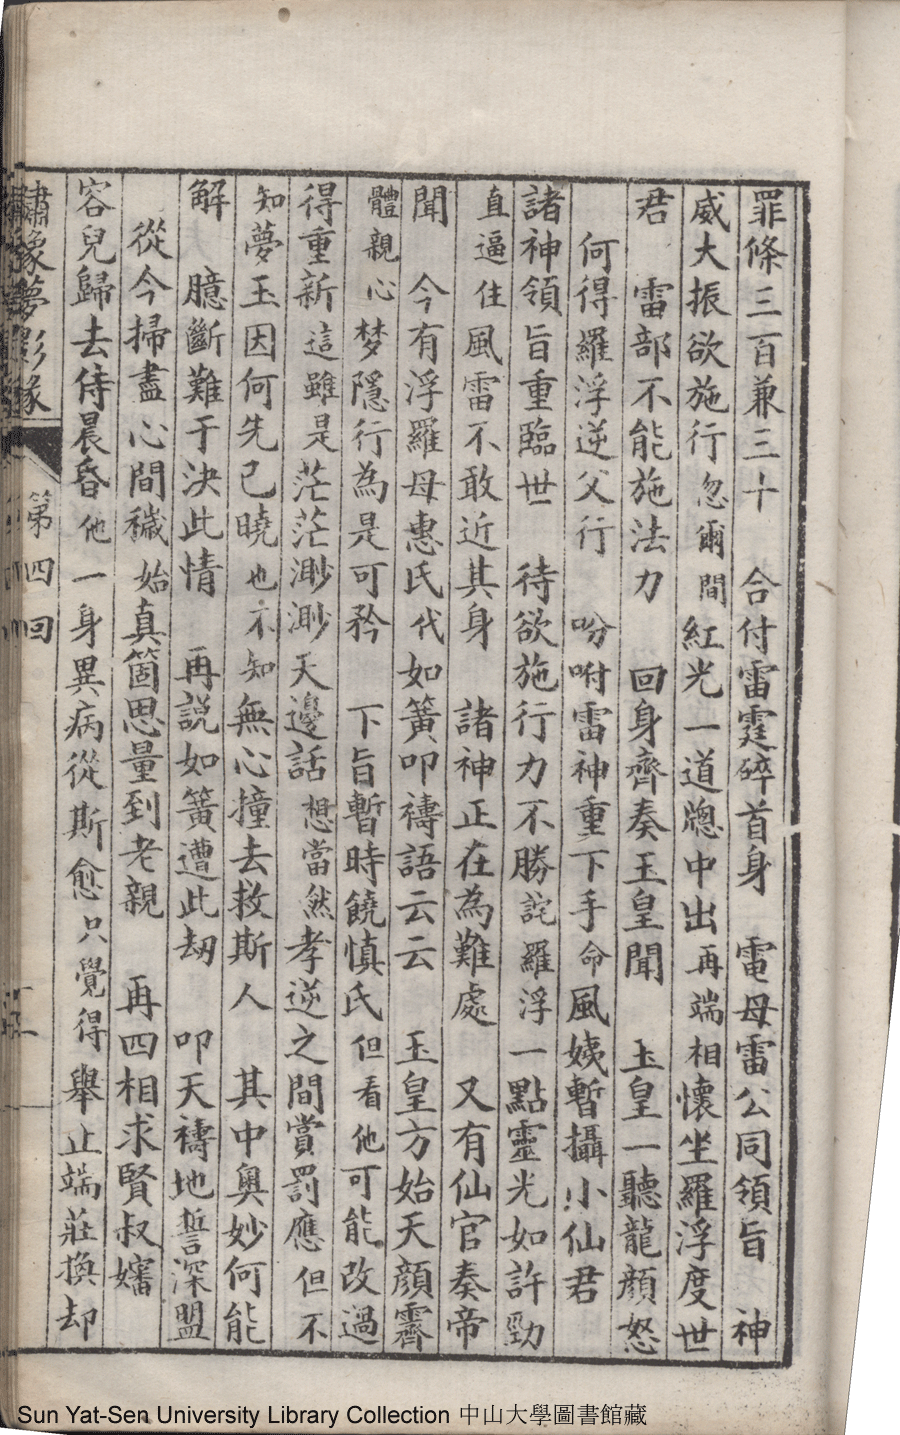 罪條三百兼三十　合付雷霆碎首身　電母雷公同領旨　神
威大振欲施行忽爾間紅光一道牕中出再端相懷坐羅浮度世
君　雷部不能施法力　回身齊奏玉皇聞　玉皇一聽龍顔怒
何得羅浮逆父行　吩咐雷神重下手命風姨暫攝小仙君
諸神領旨重臨世　待欲施行力不勝詫羅浮一點靈光如許勁
直逼住風雷不敢近其身　諸神正在為難處　又有仙官奏帝
聞　今有浮羅母惠氏代如簧叩禱語云云　玉皇方始天顔霽
體親心梦隱行為是可矜　下旨暫時饒慎氏但看他可能改過
得重新這雖是茫茫渺渺天邊話想當然孝逆之間賞罰應但不
知夢玉因何先已曉也不知無心撞去救斯人　其中奥妙何能
解　臆斷難于决此情　再説如簧遭此刼　叩天禱地誓深盟
從今掃盡心間穢始真箇思量到老親　再四相求賢叔嬸
容兒歸去侍晨昏他一身異病從斯愈只覺得舉止端莊換却
繡像夢影緣　第四回
Sun Yat-Sen University Library Collection 中山大學圖書館藏